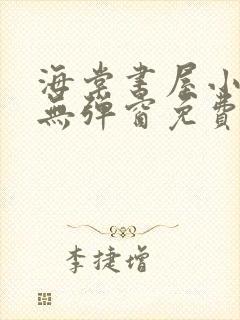 海棠書屋小
無彈窗免費
李捷增